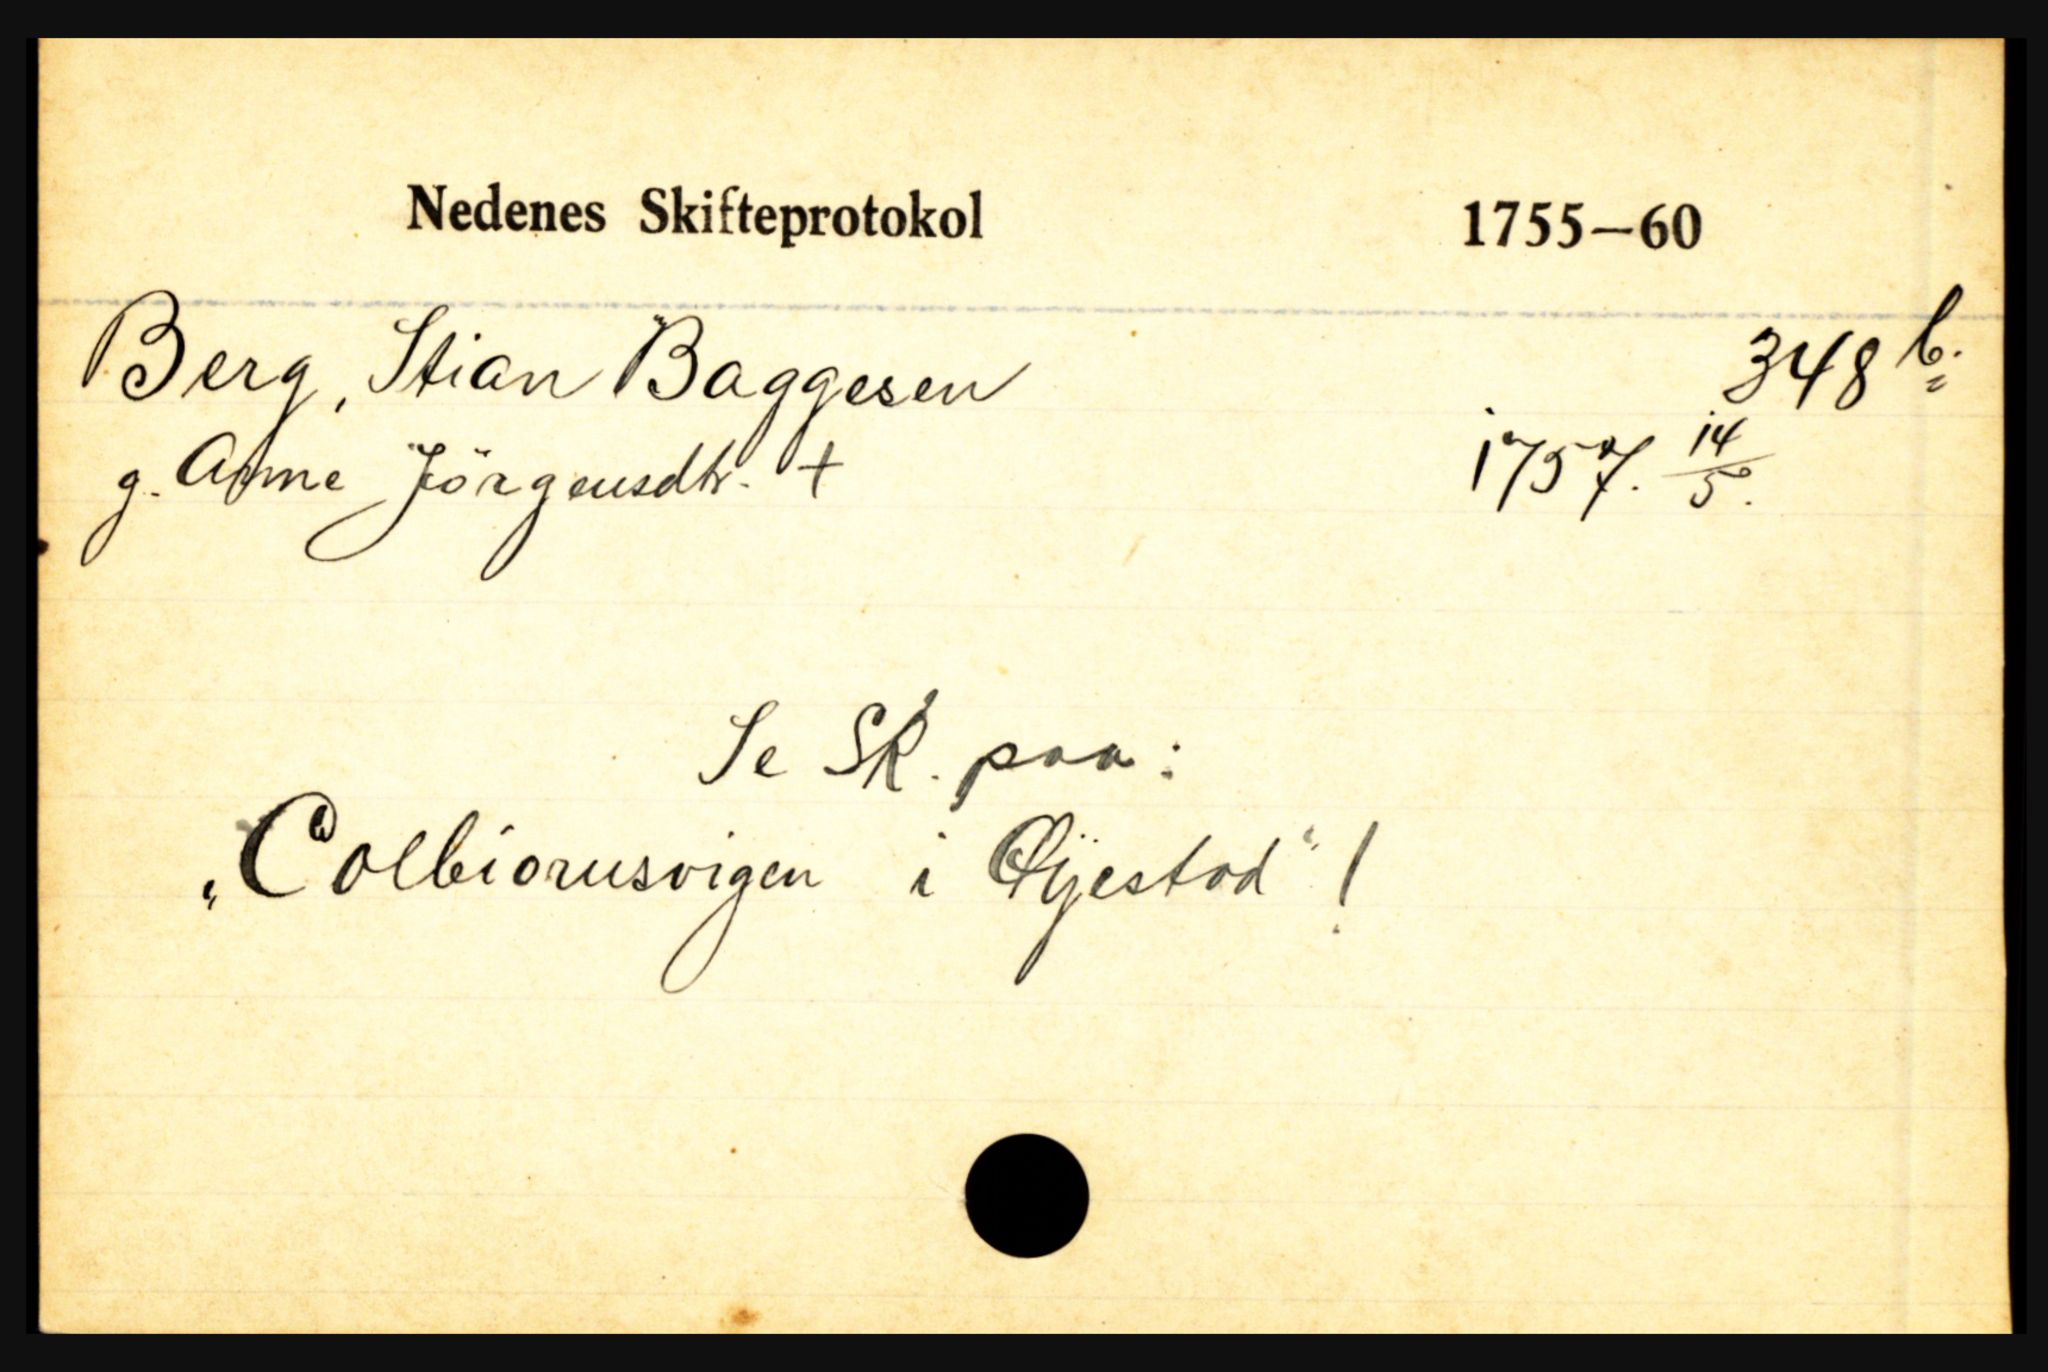 Nedenes Skifteprotokol 1755–60
Berg, Stian Baggesen 348 b.
g. Anne Jörgensdtr. + 1757. 14/5.
Se Sk. paa:
„Colbiornsvigen i Øyestad“!